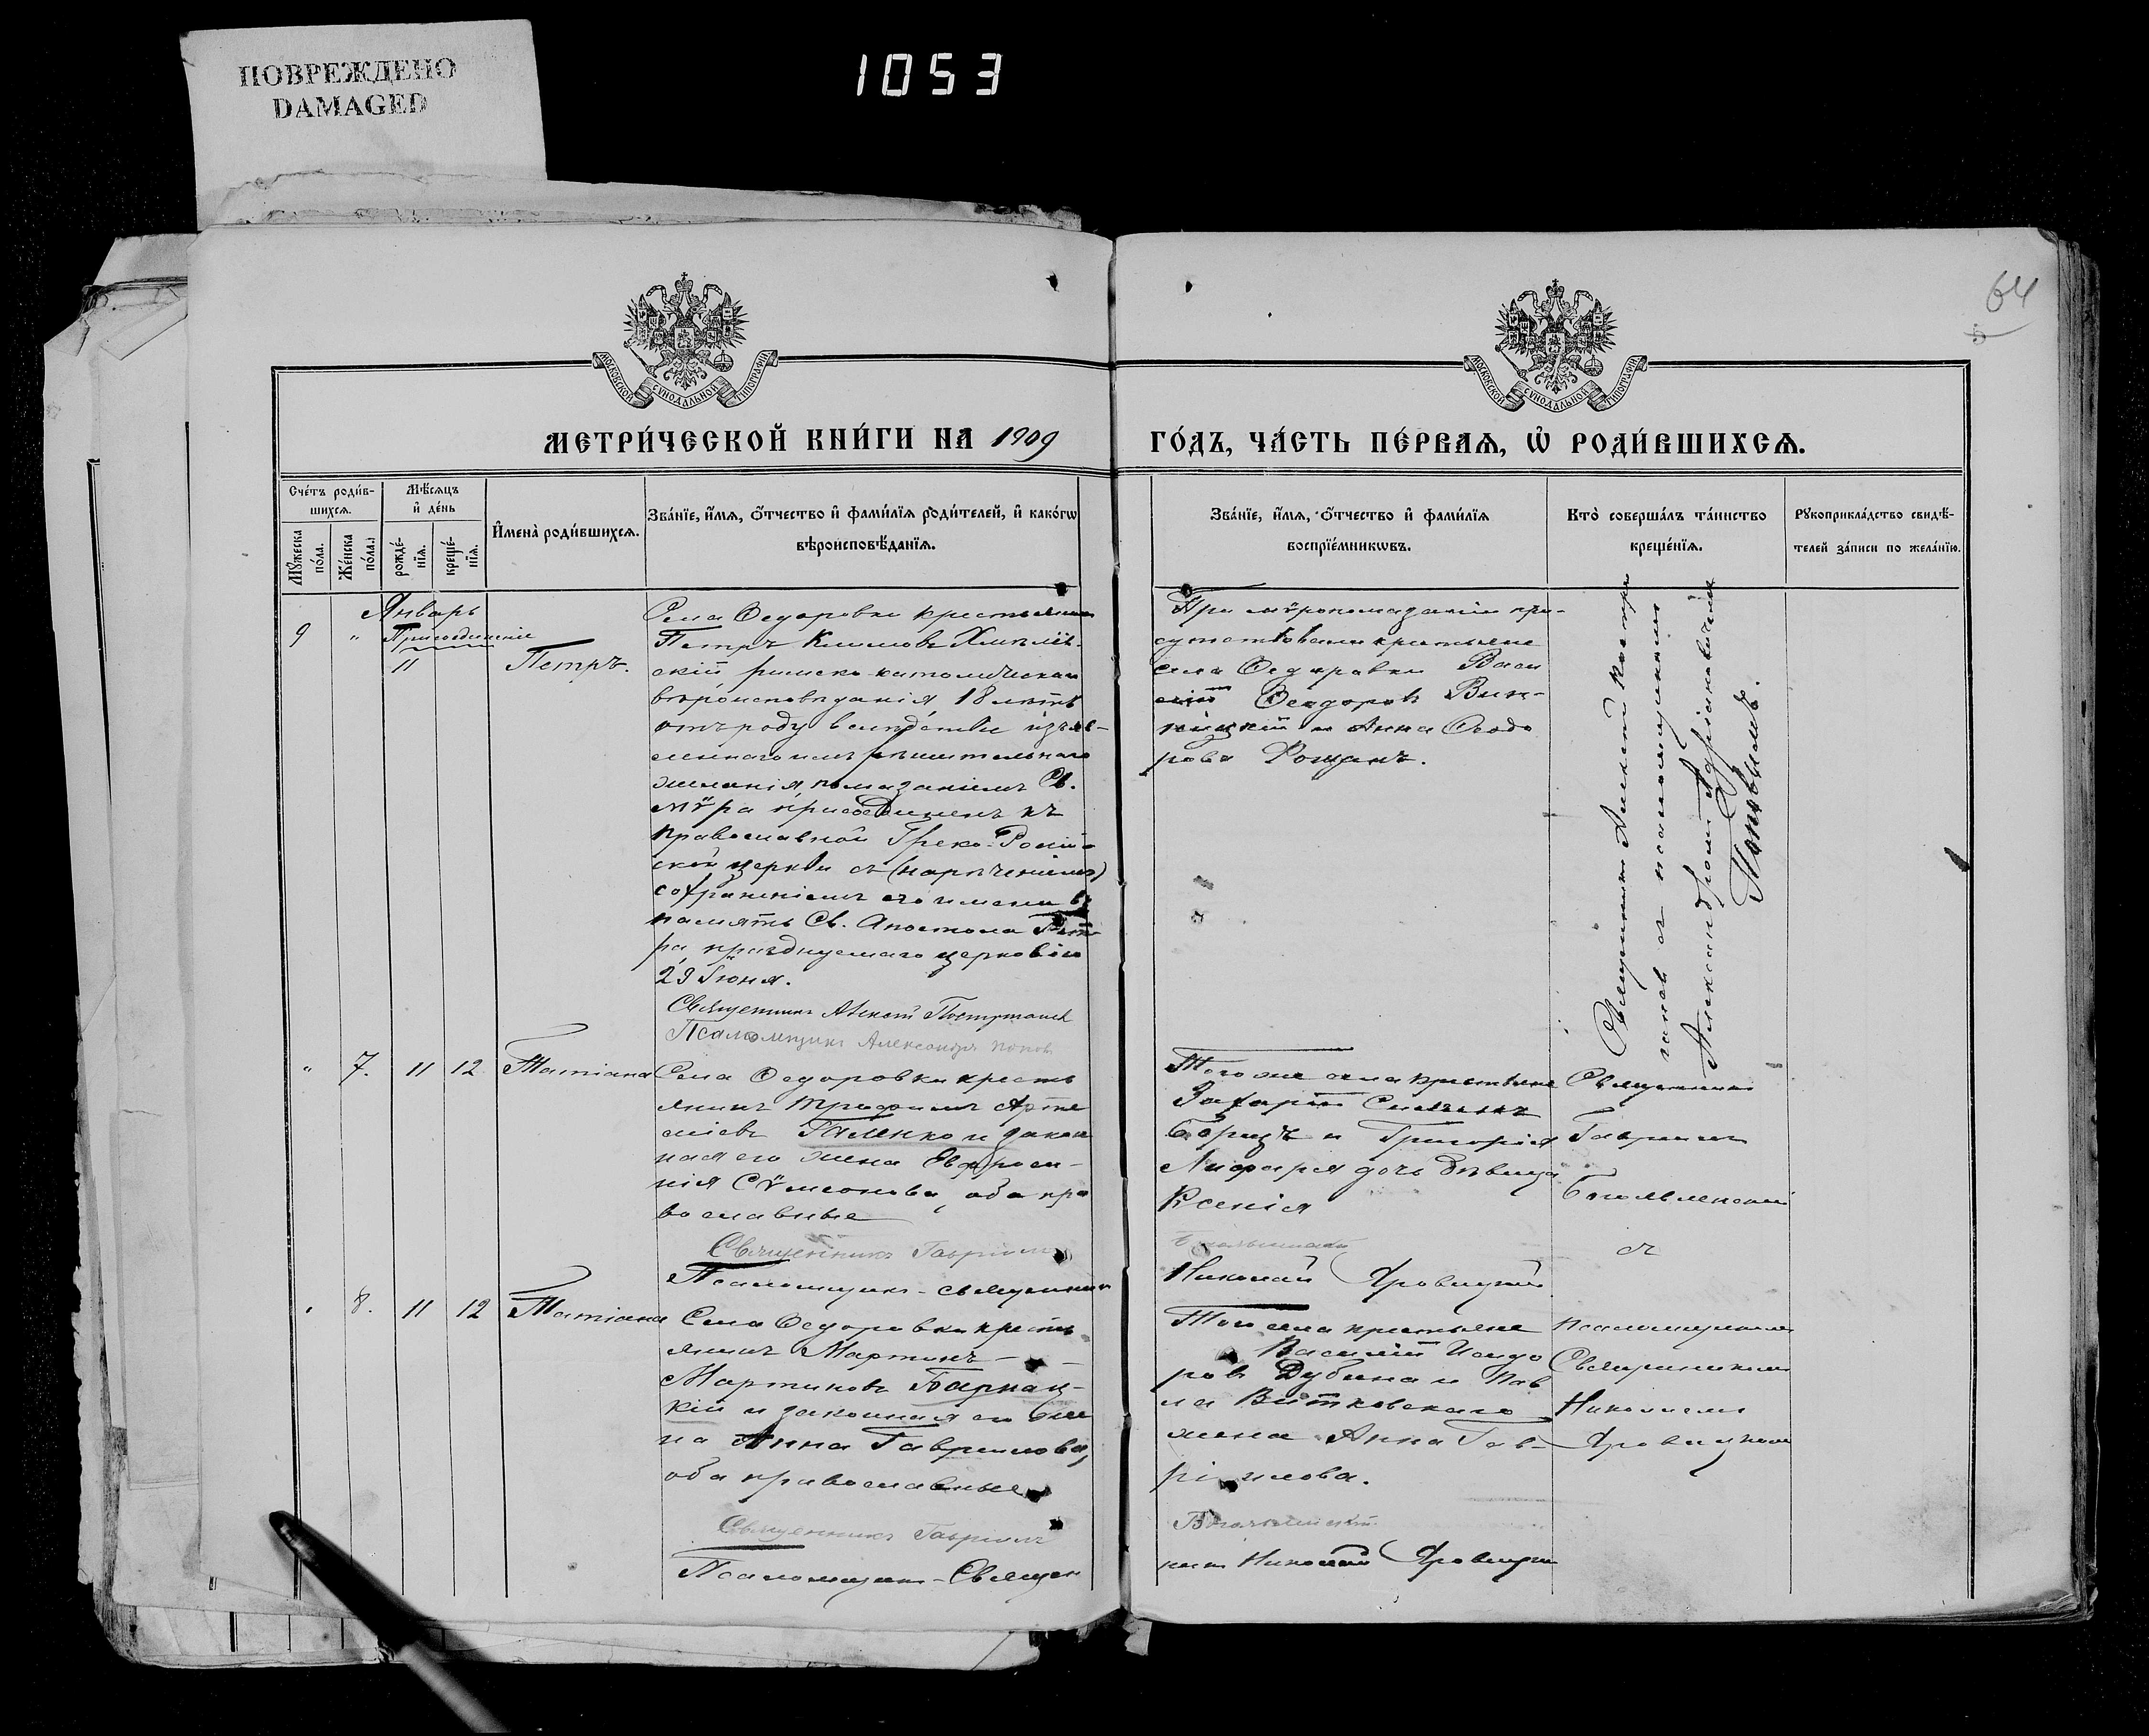 ПОВРЕЖДЕНО
DAMAGED
1053
64
5
МОСКОВСКОЙ СѴНОДАЛЬНОЙ ТИПОГРАФІИ
МОСКОВСКОЙ СѴНОДАЛЬНОЙ ТИПОГРАФІИ
МЕТРИ́ЧЕСКОЙ КНИ́ГИ НА 1909
ГО́ДЪ, ЧА́СТЬ ПЕ́РВАѦ, Ѡ҆ РОДИ́ВШИХСѦ.
Сче́тъ роди́в-
шихсѧ.
Мꙋ́жеска
по́ла.
Же́нска
по́ла.
Мѣ́сѧцъ
и҆ де́нь
рожде́-
нїѧ.
креще́-
нїѧ.
И҆мена̀ роди́вшихсѧ.
Зва́нїе, и҆́мѧ, ѻ҆́тчество и҆ фами́лїѧ роди́телей, и҆ како́гѡ
вѣроисповѣ́данїѧ.
Зва́нїе, и҆́мѧ, ѻ҆́тчество и҆ фами́лїѧ
воспрїе́мникѡвъ.
Кто̀ соверша́лъ та́инство
креще́нїѧ.
Рꙋкоприкла́дство свидѣ́-
телей за́писи по жела́нїю.
Январь
9 " Присоединеніе
11
Петръ.
Села Ѳедоровки крестьянинъ
Петръ Климовъ
скій римско-католическаго
вѣроисповѣданія, 18 лѣтъ
отъ роду вслѣдствіе изъяв-
леннаго имъ рѣшительнаго
желанія, помазаніемъ Св.
мѵра присоединенъ къ
православной Греко-Россій-
ской церкви съ (нареченіемъ)
сохраненіемъ его имени въ
память Св. Апостола Пет-
ра празднуемаго церковію
29 Іюня.
Священникъ Алексій
Псаломщикъ Александръ Поповъ
При мѵропомазаніи при-
сутствовали крестьяне
села Ѳедоровки Васи
лій Ѳеодоровъ Вин-
ницкій и Анна Ѳеодо
рова
Священникъ Алексій
съ псаломщикомъ
Александромъ Адріановичемъ
Поповымъ.
" 7. 11 12 Татіана
Села Ѳедоровки кресть
янинъ Трофимъ Арте
міевъ Галенко и закон
ная его жена Евфроси-
нія Сѵмеонова, оба пра
вославные
Священникъ Гавріилъ
Псаломщикъ - священникъ
Того же села крестьяне
Захарій
и Григорія
дочь дѣвица
Ксенія
Николай Яровицкій
Священникъ
Гавріилъ
Богоявленскій
съ
" 8. 11 12 Татіана
Села Ѳедоровки кресть
янинъ Мартинъ
Мартиновъ Барнац-
кій и законная его же
на Анна Гавріилова,
оба православные
Священникъ Гавріилъ
Псаломщикъ - Священ
Того села крестьяне
Василій Исидо
ровъ Дубина и Пав
ла Витковскаго
жена Анна Гав-
ріилова.
никъ Николай Яровицкій
псаломщикомъ
Священникомъ
Николаемъ
Яровицкимъ